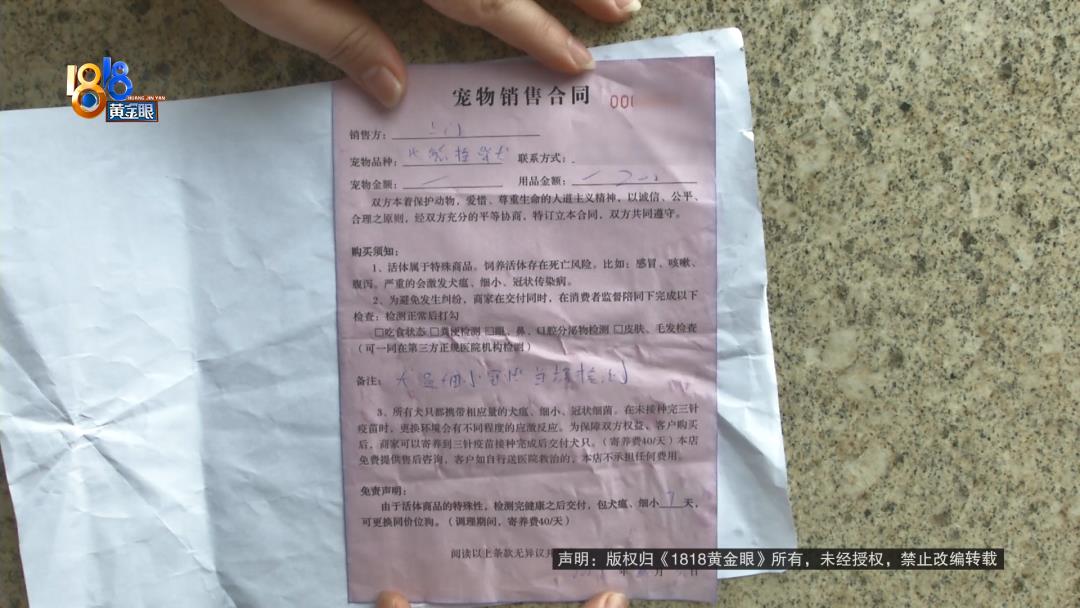 1818
HUANG JIN YAN
黄金眼
宠物销售合同 001
销售方：
宠物品种： 柴犬 联系方式：
宠物金额： 用品金额：
双方本着保护动物，爱惜、尊重生命的人道主义精神，以诚信、公平、
合理之原则，经双方充分的平等协商，特订立本合同，双方共同遵守。
购买须知：
1、活体属于特殊商品。饲养活体存在死亡风险。比如：感冒、咳嗽、
腹泻。严重的会激发犬瘟、细小、冠状传染病。
2、为避免发生纠纷，商家在交付同时，在消费者监督陪同下完成以下
检查：检测正常后打勾
□吃食状态 □粪便检测 □眼、鼻、口腔分泌物检测 □皮肤、毛发检查
（可一同在第三方正规医院机构检测）
备注： 犬瘟细小冠状
3、所有犬只都携带相应量的犬瘟、细小、冠状细菌。在未接种完三针
疫苗时，更换环境会有不同程度的应激反应。为保障双方权益、客户购买
后，商家可以寄养到三针疫苗接种完成后交付犬只。（寄养费40/天）本店
免费提供售后咨询，客户如自行送医院救治的，本店不承担任何费用。
免责声明：
由于活体商品的特殊性，检测完健康之后交付，包犬瘟、细小 7 天，
可更换同价位狗。（调理期间，寄养费40/天）
阅读以上条款无异议
声明：版权归《1818黄金眼》所有，未经授权，禁止改编转载
年 月 日